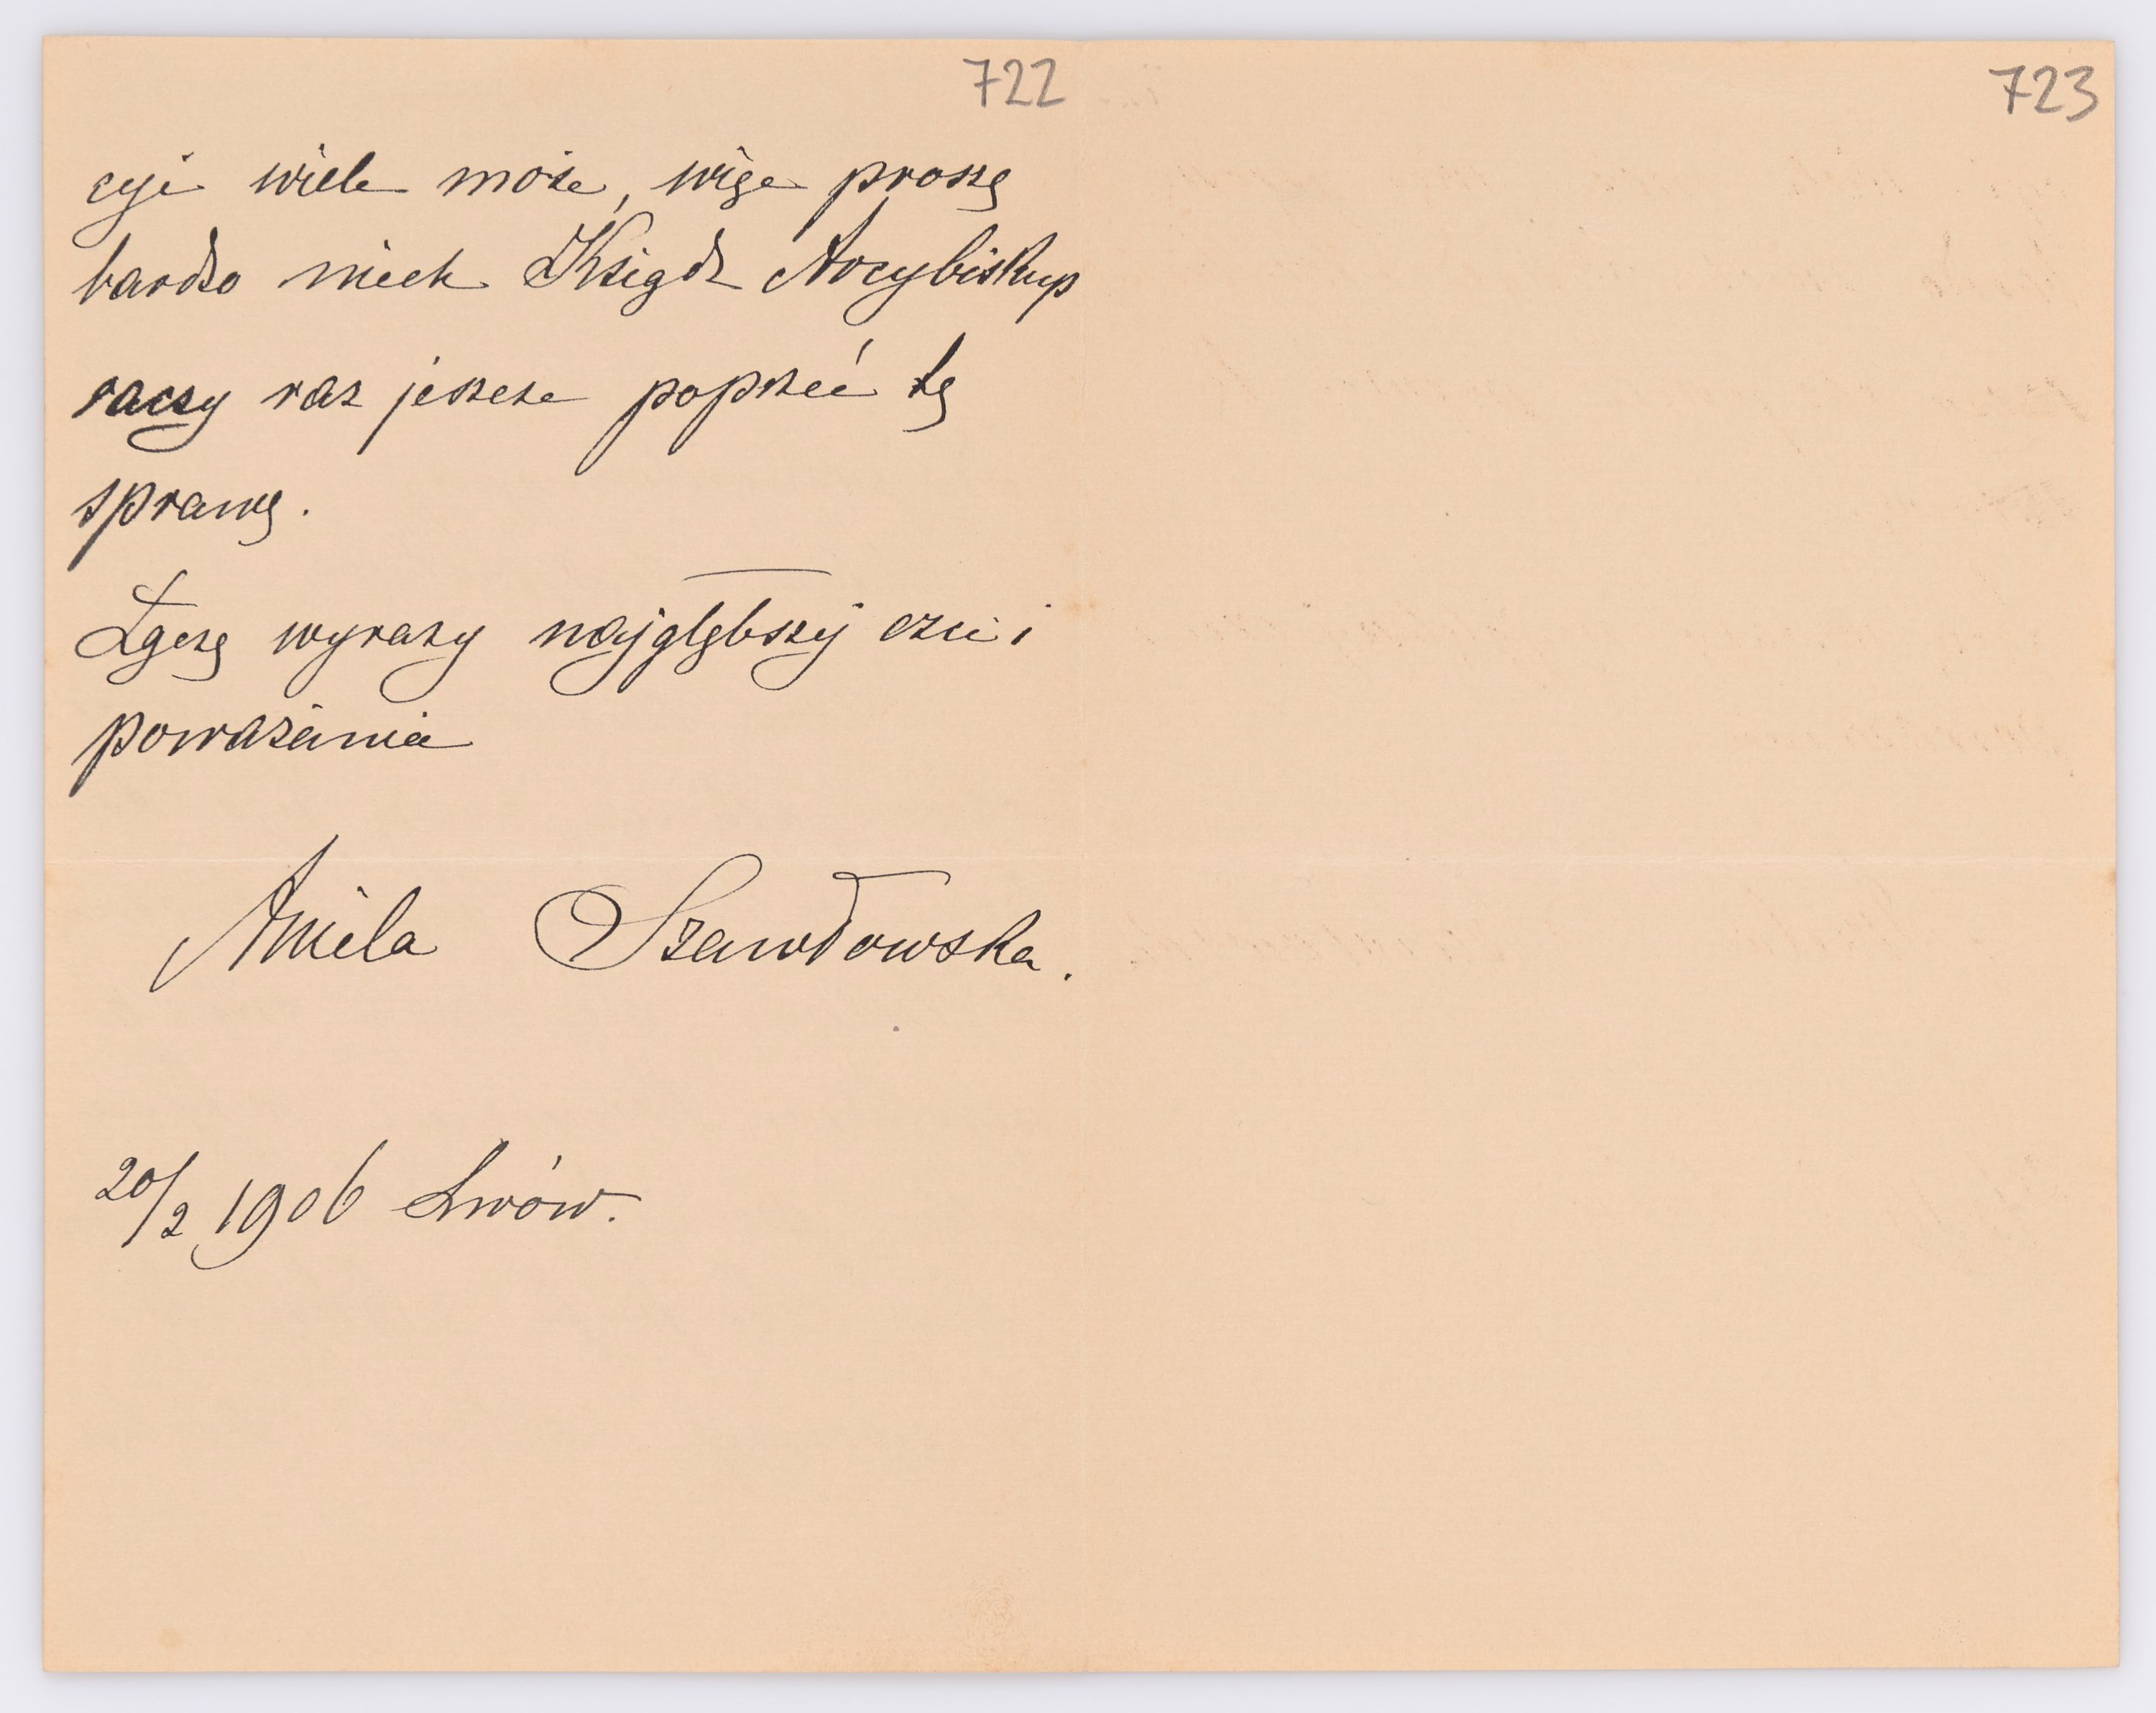 722
cyi wiele może, więc proszę
bardzo niech Ksiądz Arcybiskup
raczy raz jeszcze poprzeć tę
sprawę.
Łączę wyrazy najgłębszej czci i
poważania
Aniela Szawłowska.
20/2 1906 Lwów.
723